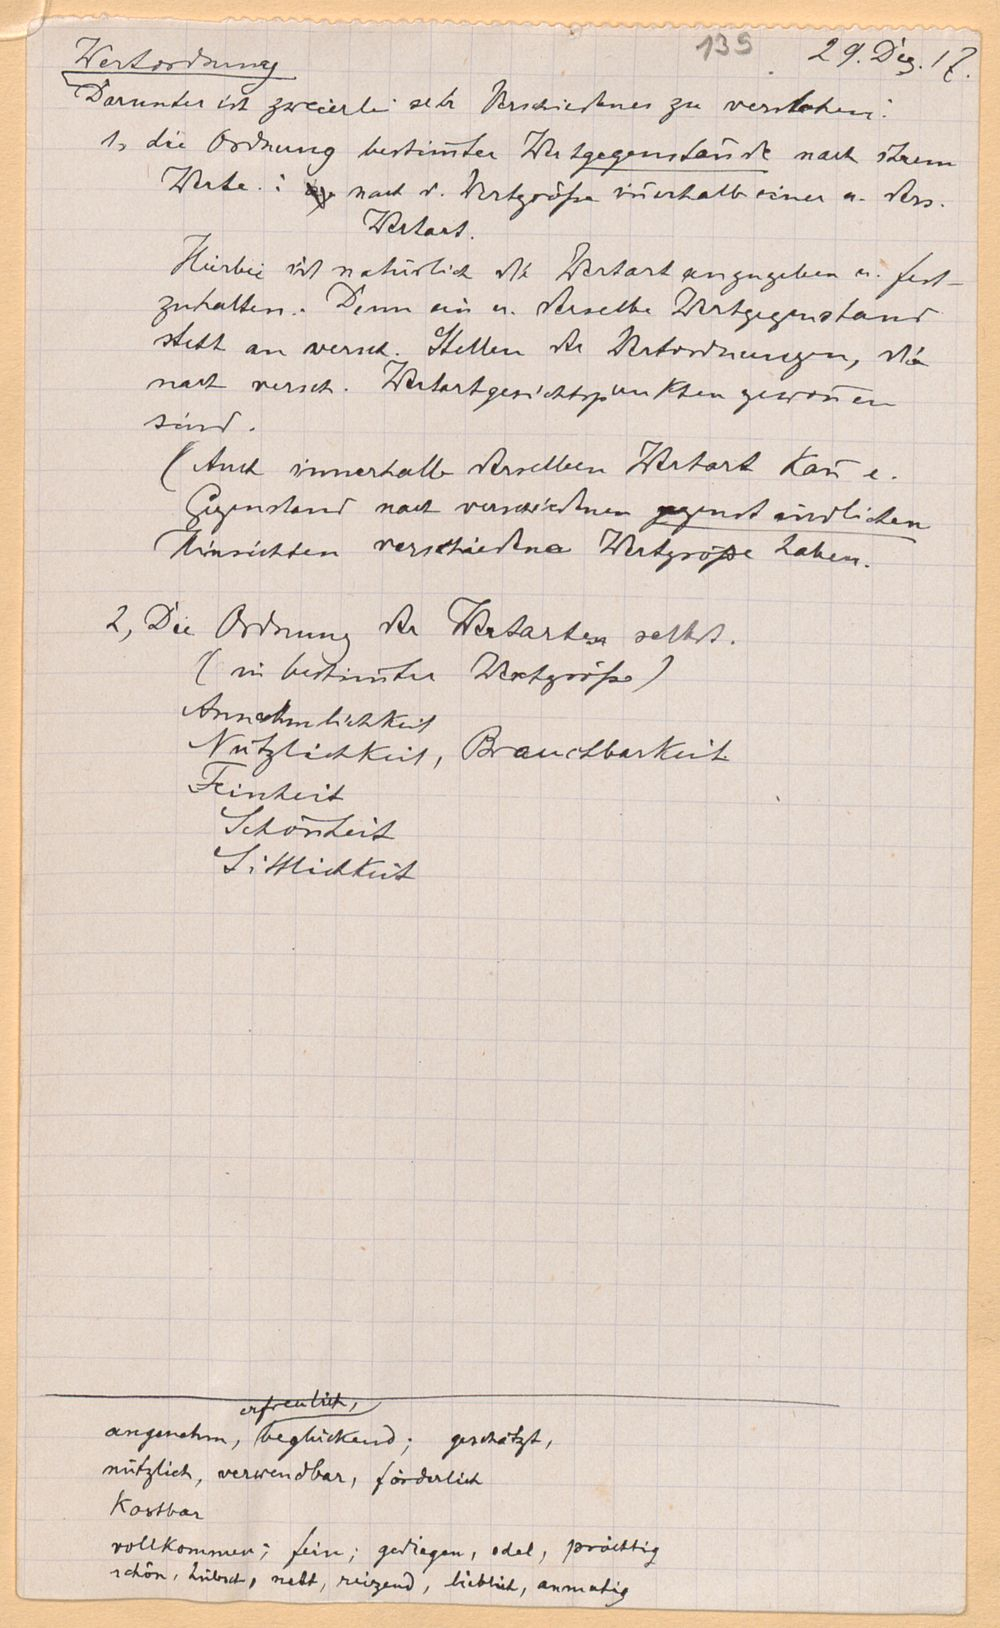 135 29. Dez. 17.
Wertordnung
Darunter ist zweierlei sehr Verschiedenes zu verstehen:
1, die Ordnung bestim̄ter Wertgegenstände nach ihrem
Werte: nach d. Wertgröße in̄erhalb einer u. ders.
Wertart.
Hierbei ist natürlich die Wertart anzugeben u. fest-
zuhalten. Denn ein u. derselbe Wertgegenstand
steht an versch. Stellen der Wertordnungen, die
nach versch. Wertartgesichtspunkten gewon̄en
sind.
(Auch innerhalb derselben Wertart kan̄ e.
Gegenstand nach verschiedenen gegenständlichen
Hinsichten verschiedene Wertgröße haben.
2, Die Ordnung der Wertarten selbst.
(in bestim̄ter Wertgröße)
Annehmlichkeit
Nützlichkeit, Brauchbarkeit
Feinheit
Schönheit
Sittlichkeit
erfreulich,
angenehm, beglückend; geschätzt,
nützlich, verwendbar, förderlich
Kostbar
vollkommen; fein; gediegen, edel, prächtig
schön, hübsch, nett, reizend, lieblich, anmutig